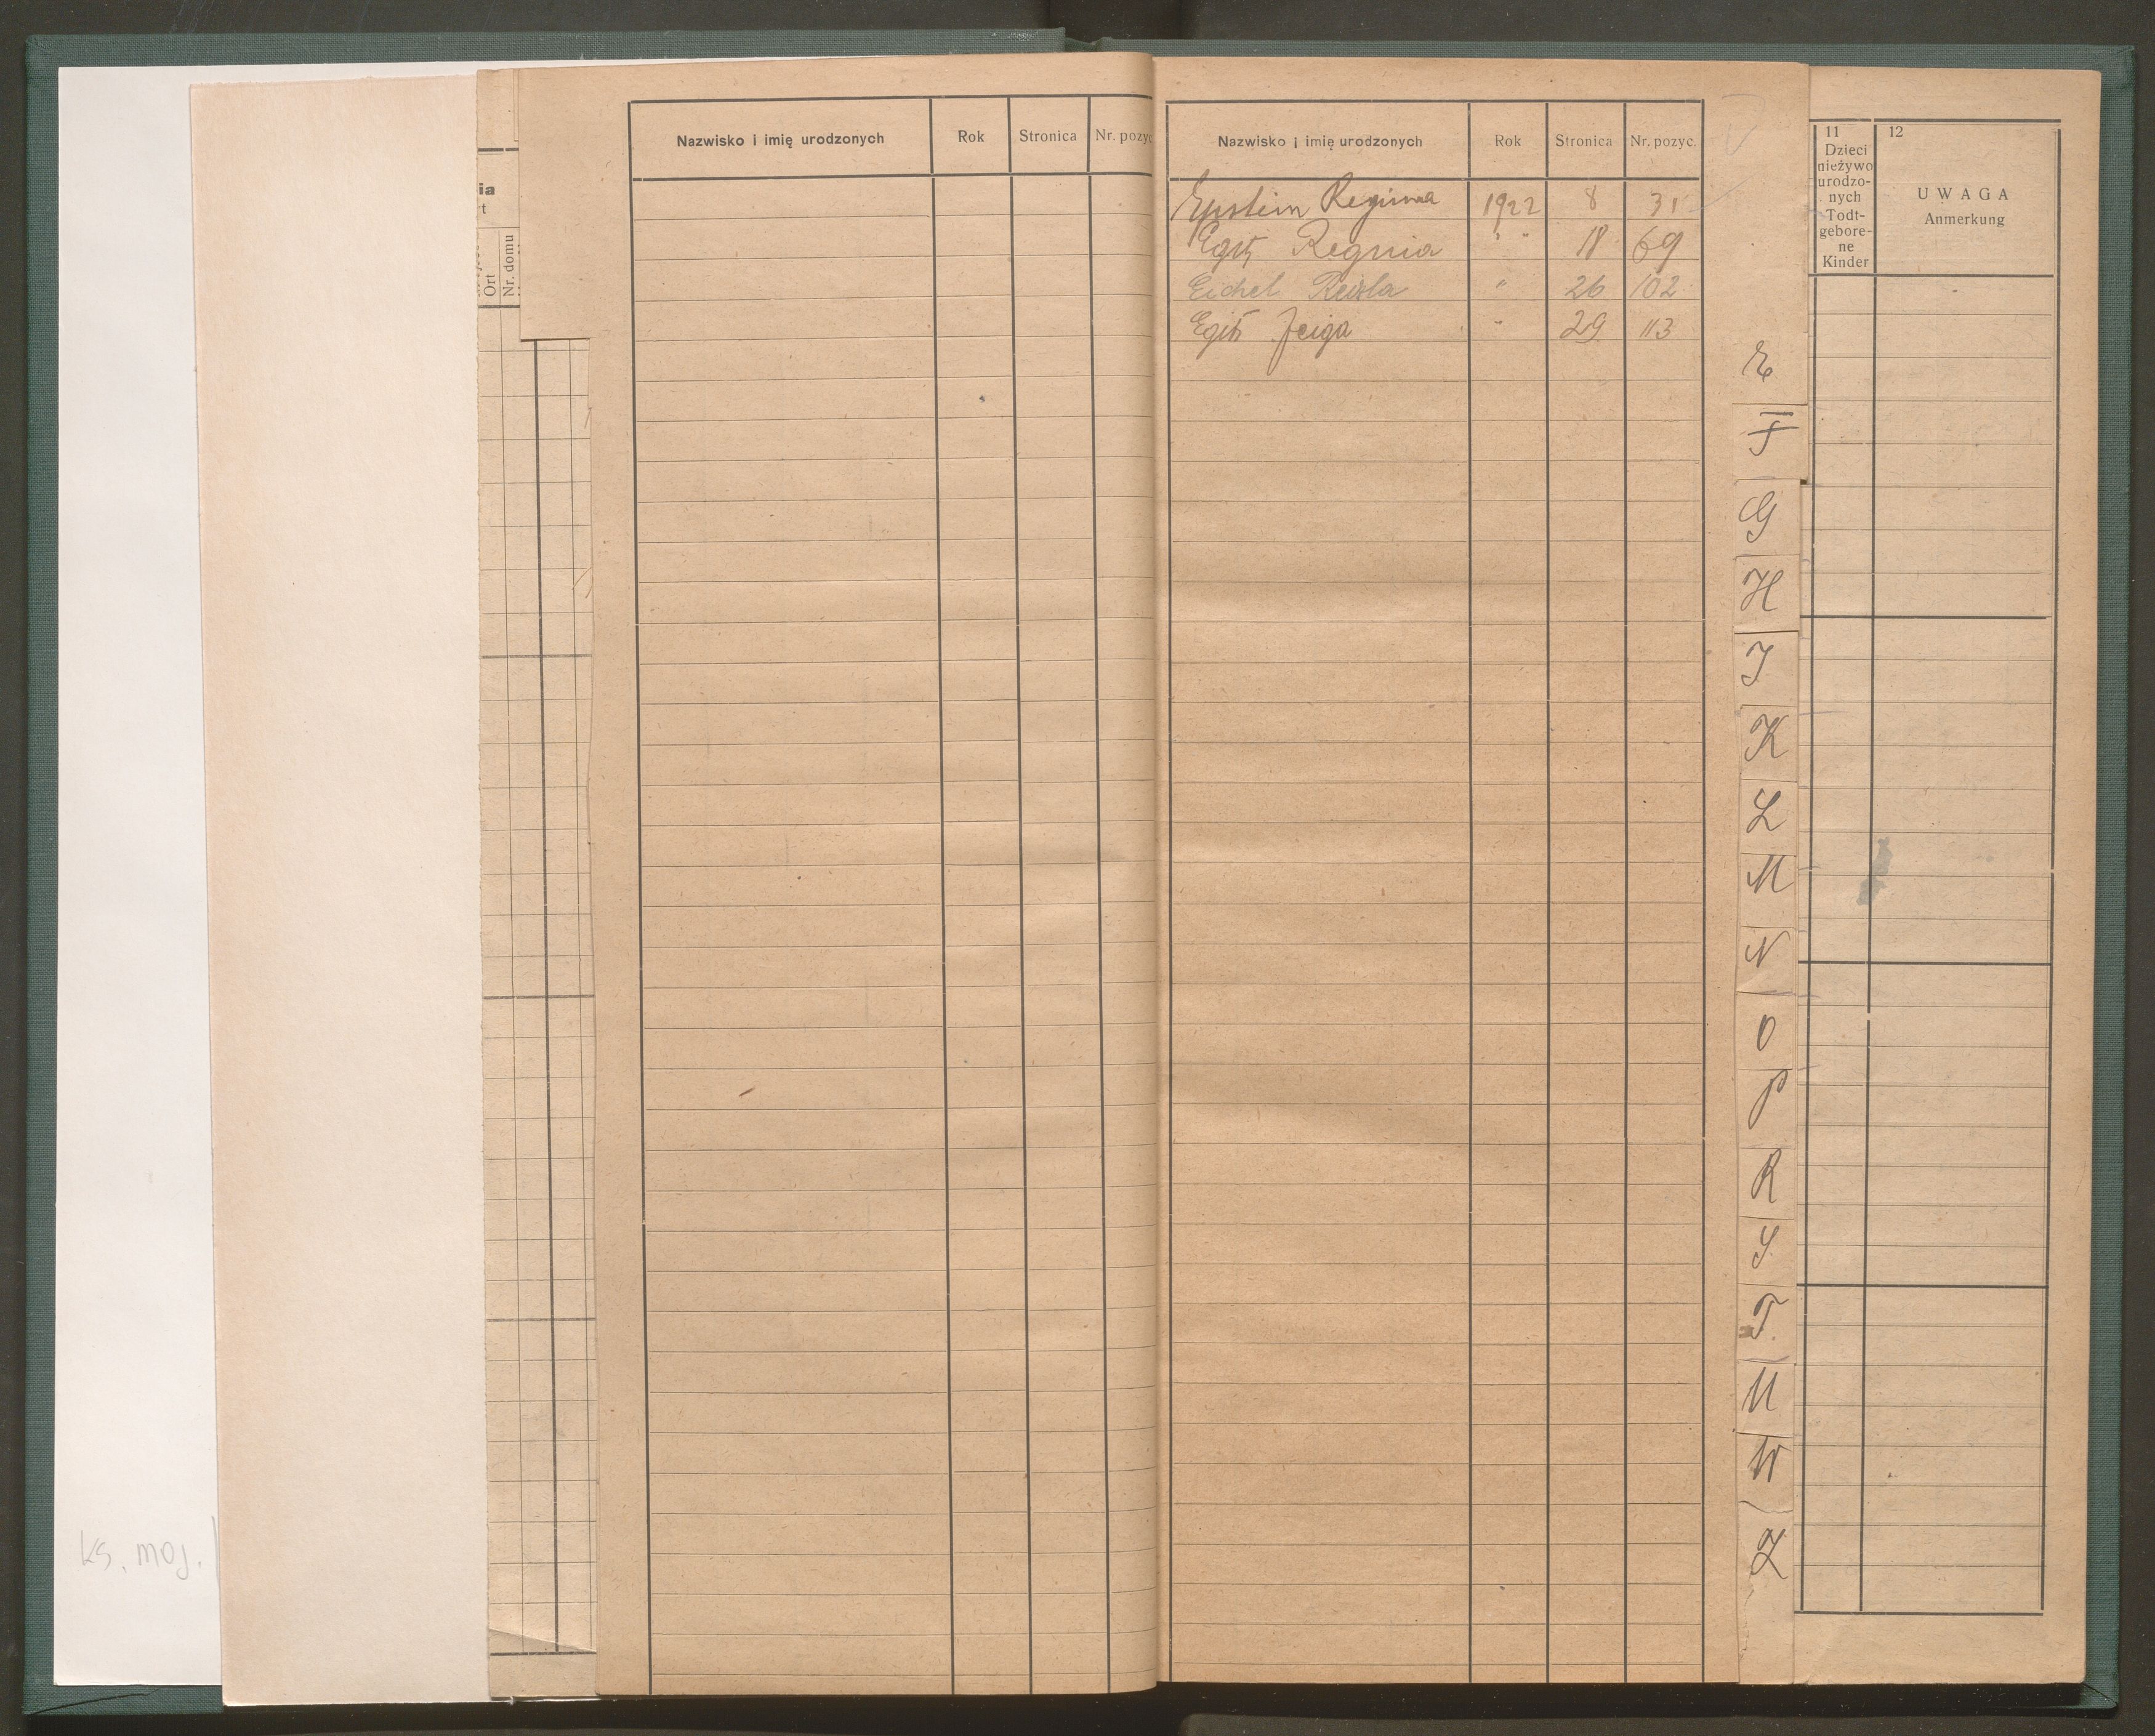 ia
t
Ort
Nr. domu
Nazwisko i imię urodzonych Rok Stronica Nr. pozyc
Nazwisko i imię urodzonych Rok Stronica Nr. pozyc.
Epstein Regina 1922 8 31
Regnia " " 18 69
Eichel Reizla " 26 102
Feiga " 29 113
E
F
G
H
I
K
L
M
N
O
P
R
S
T
U
W
Z
11
Dzieci
nieżywo
urodzo-
nych
Todt-
gebore-
ne
Kinder
12
UWAGA
Anmerkung
ks. moj.